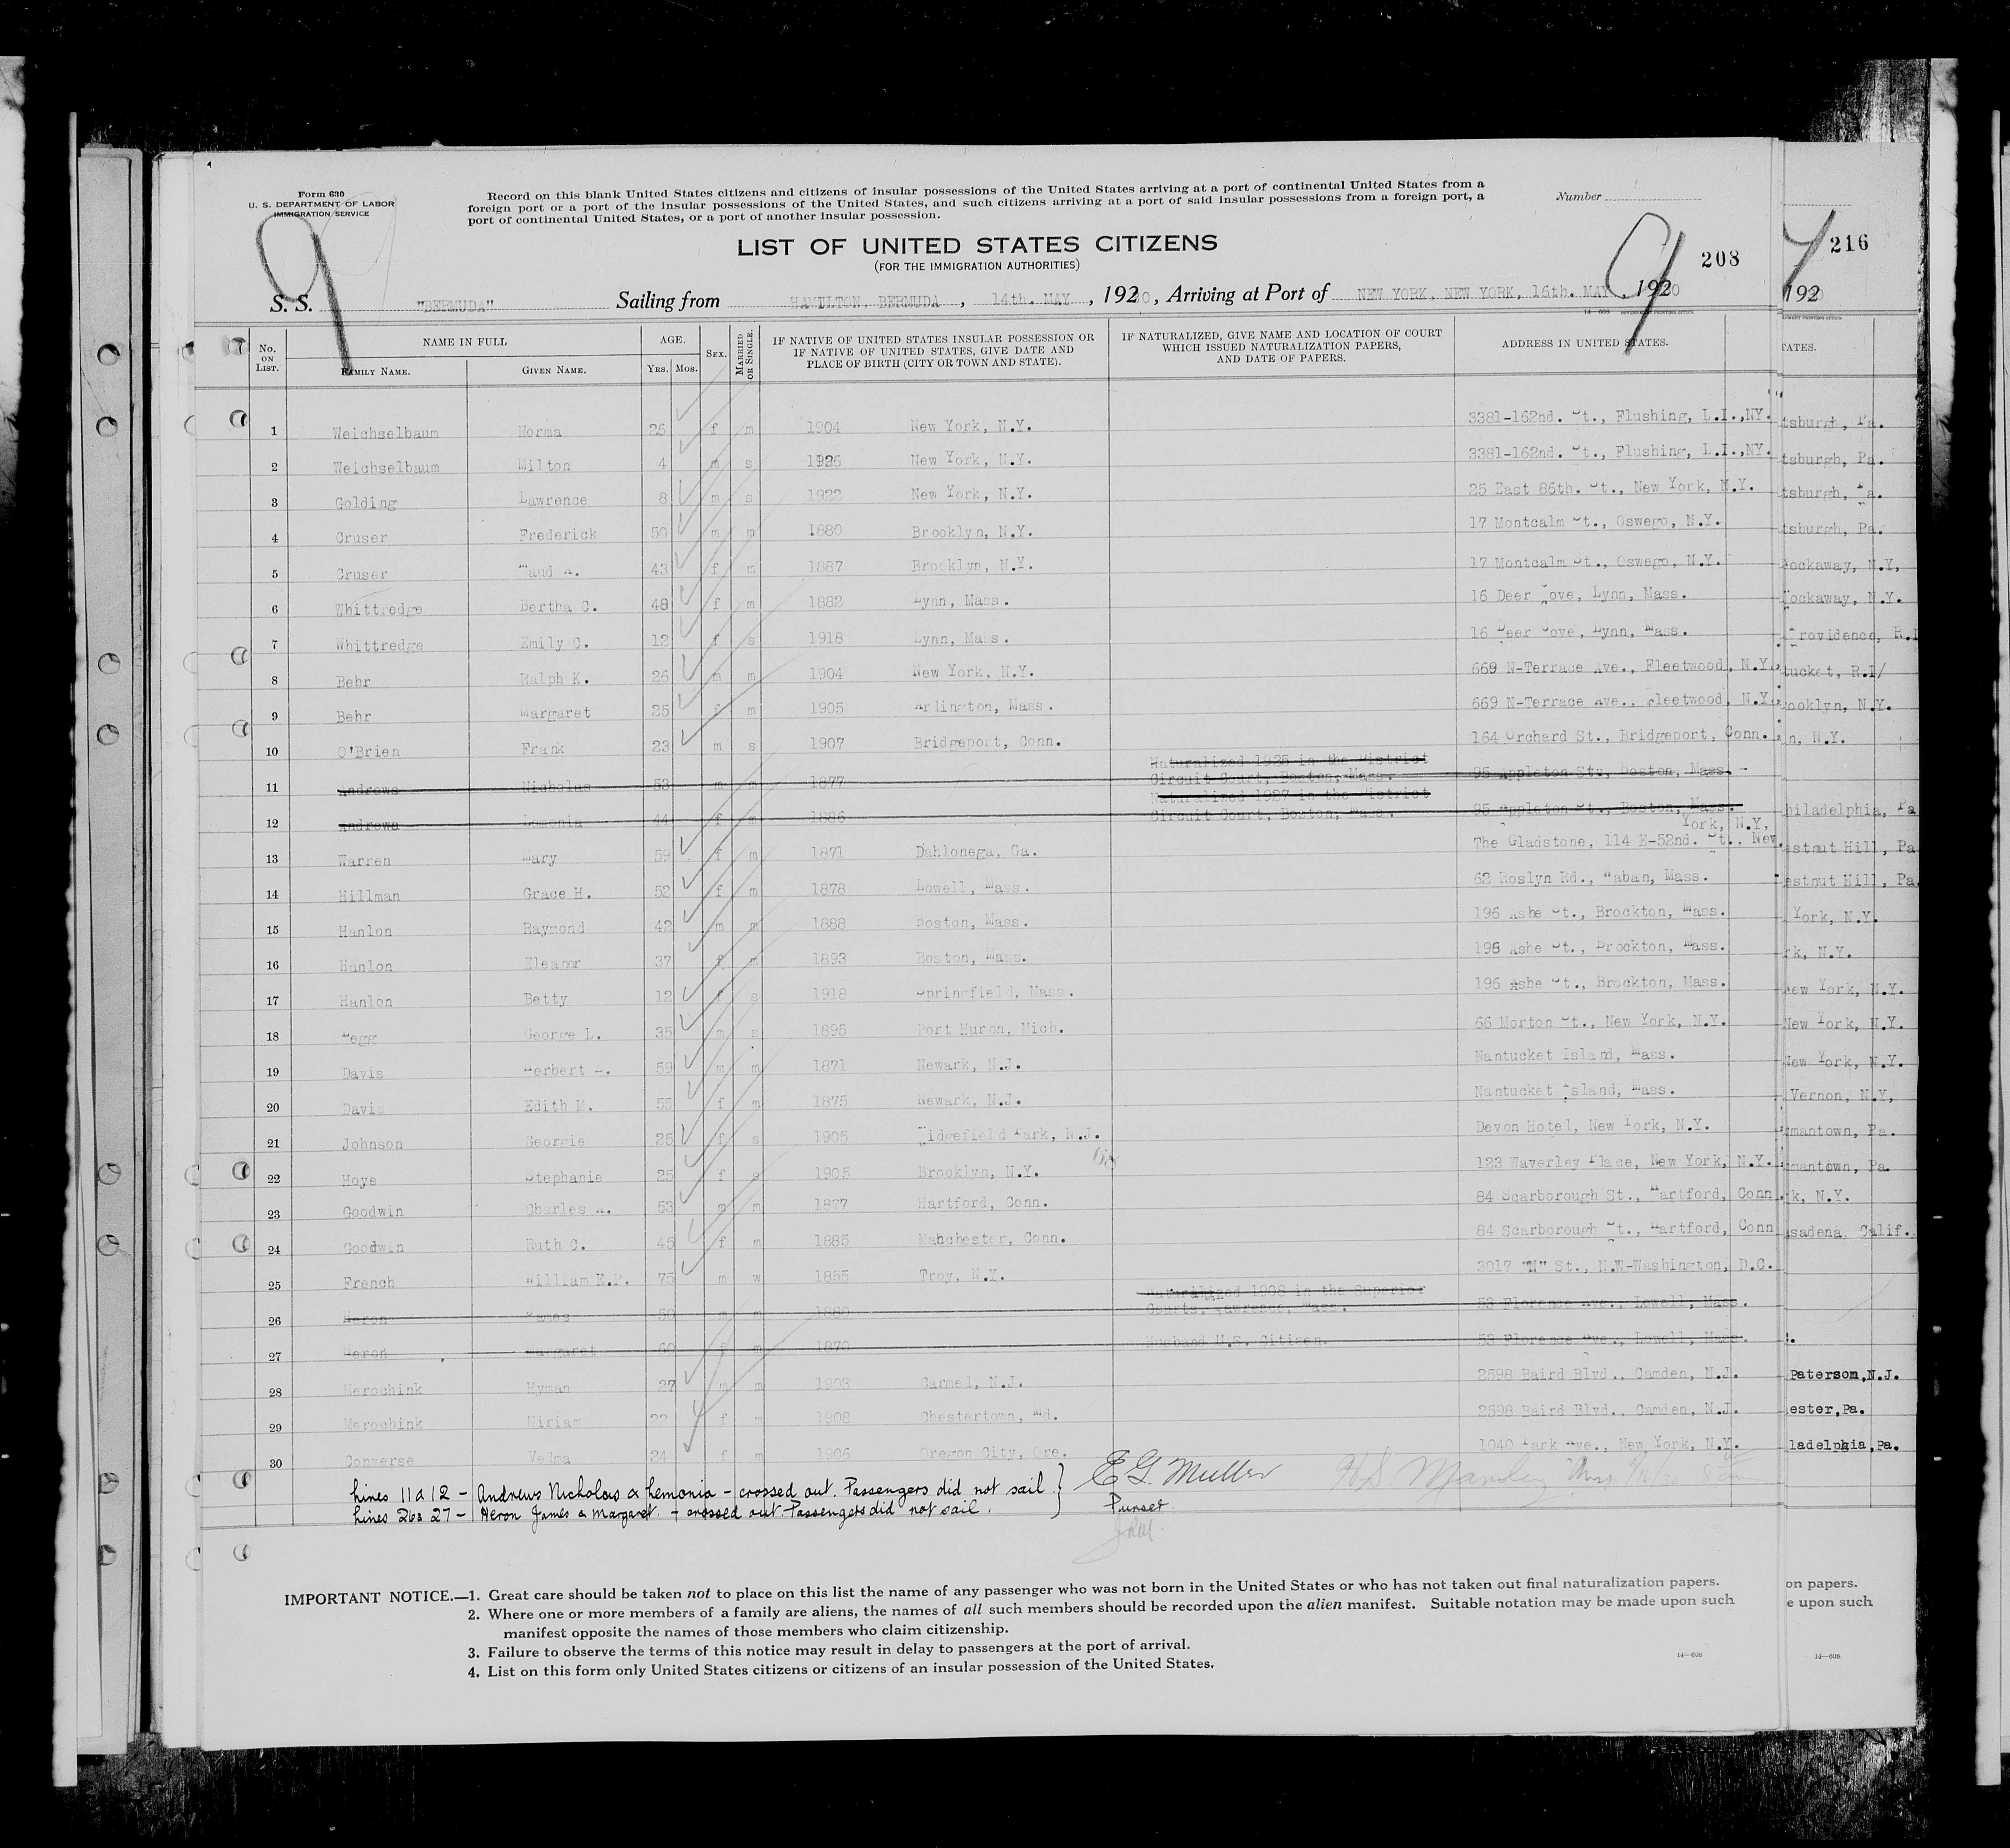 Form 630
U. S. DEPARTMENT OF LABOR
IMMIGRATION SERVICE
Record on this blank United States citizens and citizens of insular possessions of the United States arriving at a port of continental United States from a
foreign port or a port of the insular possessions of the United States, and such citizens arriving at a port of said insular possessions from a foreign port, a
port of continental United States, or a port of another insular possession.
Number
9
9
208
LIST OF UNITED STATES CITIZENS
(FOR THE IMMIGRATION AUTHORITIES)
S. S. "BERMUDA" Sailing from HAMILTON, BERMUDA, 14th. MAY, 1930, Arriving at Port of NEW YORK, NEW YORK, 16th. MAY, 1930
No. ON LIST. NAME IN FULL FAMILY NAME. GIVEN NAME. AGE. YRS. MOS. SEX. MARRIED OR SINGLE. IF NATIVE OF UNITED STATES INSULAR POSSESSION OR IF NATIVE OF UNITED STATES, GIVE DATE AND PLACE OF BIRTH (CITY OR TOWN AND STATE). IF NATURALIZED, GIVE NAME AND LOCATION OF COURT WHICH ISSUED NATURALIZATION PAPERS, AND DATE OF PAPERS. ADDRESS IN UNITED STATES.
1 Weichselbaum Norma 26 f m 1904 New York, N.Y. 3381-162nd. St., Flushing, L.I.,NY.
2 Weichselbaum Milton 4 m s 1926 New York, N.Y. 3381-162nd. St., Flushing, L.I.,NY.
3 Golding Lawrence 8 m s 1922 New York, N.Y. 25 East 86th. St., New York, N.Y.
4 Cruser Frederick 50 m m 1880 Brooklyn, N.Y. 17 Montcalm St., Oswego, N.Y.
5 Cruser Maud A. 43 f m 1887 Brooklyn, N.Y. 17 Montcalm St., Oswego, N.Y.
6 Whittredge Bertha C. 48 f m 1882 Lynn, Mass. 16 Deer Cove, Lynn, Mass.
7 Whittredge Emily C. 12 f s 1918 Lynn, Mass. 16 Deer Cove, Lynn, Mass.
8 Behr Ralph K. 26 m m 1904 New York, N.Y. 669 N-Terrace Ave., Fleetwood, N.Y.
9 Behr Margaret 25 f m 1905 Arlington, Mass. 669 N-Terrace Ave., Fleetwood, N.Y.
10 O'Brien Frank 23 m s 1907 Bridgeport, Conn. 164 Orchard St., Bridgeport, Conn.
11 Andrews Nicholas 53 m m 1877 Naturalized 1925 in the District Circuit Court, Boston, Mass. 95 Appleton St., Boston, Mass.
12 Andrews Lemonia 44 f m 1886 Naturalized 1927 in the District Circuit Court, Boston, Mass. 95 Appleton St., Boston, Mass.
13 Warren Mary 59 f m 1871 Dahlonega, Ga. The Gladstone, 114 E-52nd. St., New York, N.Y.
14 Hillman Grace H. 52 f m 1878 Lowell, Mass. 62 Roslyn Rd., Waban, Mass.
15 Hanlon Raymond 42 m m 1888 Boston, Mass. 196 Ashe St., Brockton, Mass.
16 Hanlon Eleanor 37 f m 1893 Boston, Mass. 196 Ashe St., Brockton, Mass.
17 Hanlon Betty 12 f s 1918 Springfield, Mass. 196 Ashe St., Brockton, Mass.
18 George L. 35 m s 1895 Port Huron, Mich. 66 Morton St., New York, N.Y.
19 Davis Herbert 59 m m 1871 Newark, N.J. Nantucket Island, Mass.
20 Davis Edith M. 55 f m 1875 Newark, N.J. Nantucket Island, Mass.
21 Johnson Georgie 25 f s 1905 Ridgefield Park, N.J. Devon Hotel, New York, N.Y.
22 Hoye Stephanie 25 f s 1905 Brooklyn, N.Y. 123 Waverley Place, New York, N.Y.
23 Goodwin Charles A. 53 m m 1877 Hartford, Conn. 84 Scarborough St., Hartford, Conn.
24 Goodwin Ruth C. 45 f m 1885 Mahchester, Conn. 84 Scarborough St., Hartford, Conn
25 French William E.P. 75 m w 1855 Troy, N.Y. 3017 "N" St., N.W-Washington, D.C.
26 Heron James 50 m m 1880 Naturalized 1908 in the Superior Courts, Lawrence, Mass. 53 Florence Ave., Lowell, Mass.
27 Heron Margaret 60 f m 1870 Husband U.S. Citizen. 53 Florence Ave., Lowell, Mass.
28 Merochink Hyman 27 m m 1903 Carmel, N.J. 2598 Baird Blvd., Camden, N.J.
29 Merochink Miriam 22 f m 1908 Chestertown, Md. 2598 Baird Blvd., Camden, N.J.
30 Converse Velma 24 f m 1906 Oregon City, Ore. 1040 Park Ave., New York, N.Y.
Lines 11 & 12 - Andrews Nicholas & Lemonia - crossed out. Passengers did not sail. } E G. Muller
Lines 26 & 27 - Heron James & Margaret. - crossed out. Passengers did not sail. Purser.
IMPORTANT NOTICE.—1. Great care should be taken not to place on this list the name of any passenger who was not born in the United States or who has not taken out final naturalization papers.
2. Where one or more members of a family are aliens, the names of all such members should be recorded upon the alien manifest. Suitable notation may be made upon such
manifest opposite the names of those members who claim citizenship.
3. Failure to observe the terms of this notice may result in delay to passengers at the port of arrival.
4. List on this form only United States citizens or citizens of an insular possession of the United States.
14—608
216
192
TATES.
tsburgh, Pa.
tsburgh, Pa.
tsburgh, Pa.
tsburgh, Pa.
ockaway, N.Y,
ockaway, N.Y.
Providence, R.I
tucket, R.I/
ooklyn, N.Y.
n, N.Y.
hiladelphia, Pa
estnut Hill, Pa
estnut Hill, Pa.
York, N.Y.
rk, N.Y.
New York, N.Y.
New York, N.Y.
New York, N.Y.
Vernon, N.Y,
rmantown, Pa.
rmantown, Pa.
k, N.Y.
sadena, Calif.
Paterson,N.J.
ester,Pa.
ladelphia,Pa.
on papers.
e upon such
14—608